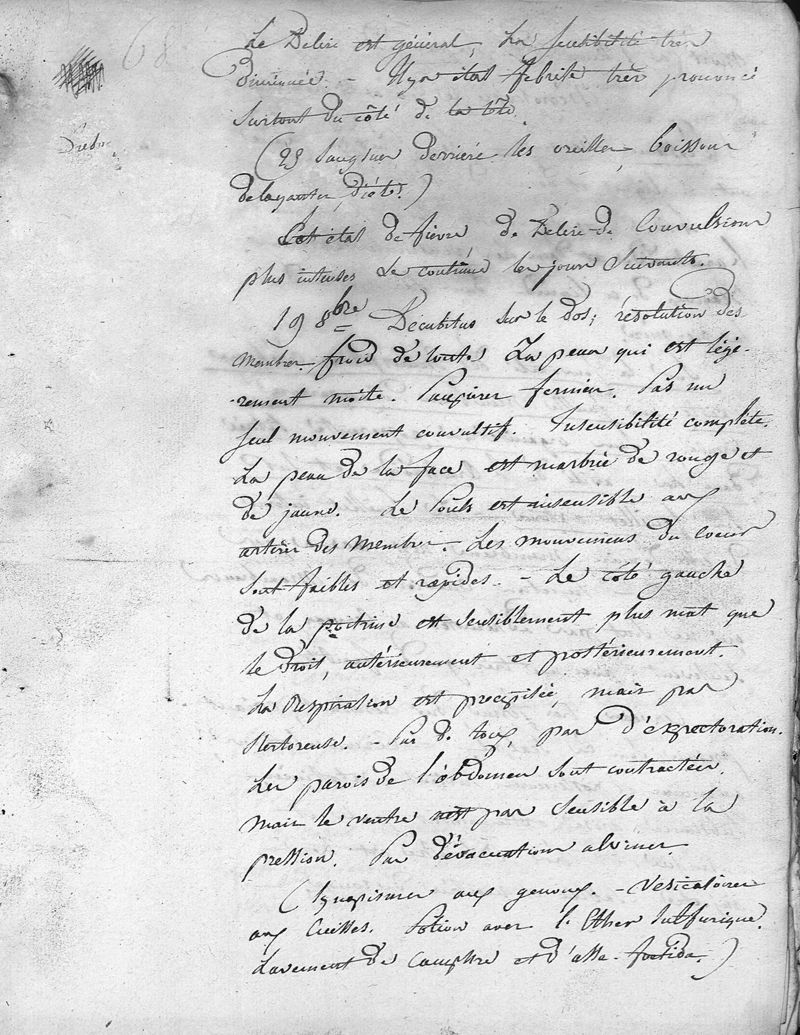 68
Le Delire est général, La sensibilité très
diminuée. - Il y a état fébrile très prononcé
surtout du côté de la tête.
(25 Sangsues derrière les oreilles, boissons
delayantes, diète.)
Cet état de fièvre de Delire de Convulsions
plus intenses se continue les jours suivants.
19 8bre Décubitus sur le dos; résolution des
membres. froid de toute La peau qui est légè-
-rement moite. Paupières fermées. Pas un
seul mouvement convulsif. Insensibilité complète.
La peau de la face est marbrée de rouge et
de jaune. Le Pouls est insensible aux
artères des membres. Les mouvemens du coeur
sont faibles et rapides. - Le côté gauche
de la poitrine est sensiblement plus mat que
le droit, antérieurement et postérieurement.
La Respiration est precipitée, mais pas
stertoreuse. - Pas de toux, pas d'expectoration.
Les parois de l'abdomen sont contractées,
mais le ventre n'est pas sensible à la
pression. Pas d'évacuations alvines
(Synapismes aux genoux. - Vesicatoires
aux Cuisses. Potion avec l'Ether Sulfurique.
Lavement de Camphre et d'assa-foetida)